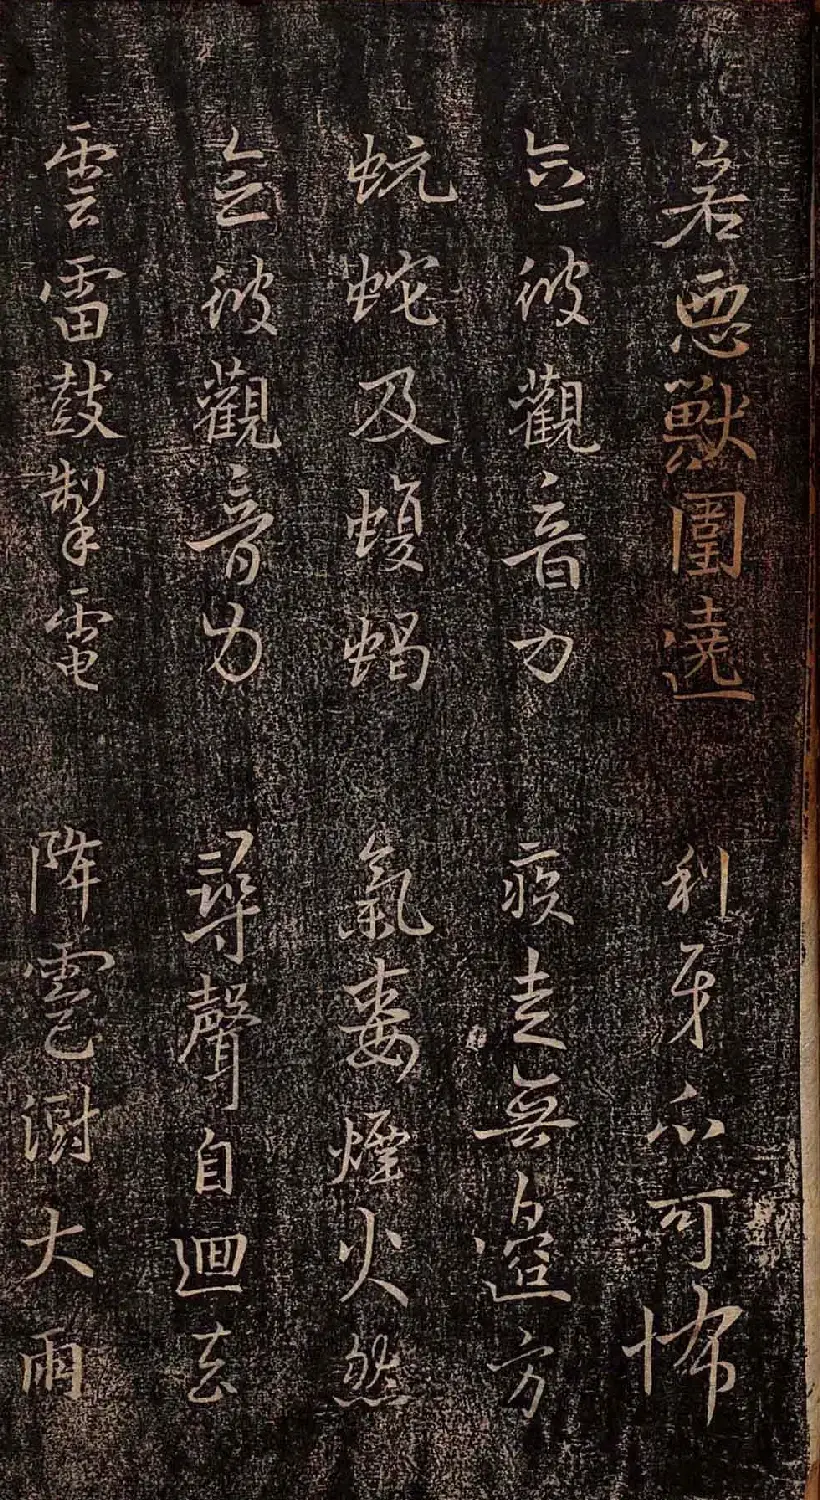 若惡獸圍遶 利牙爪可怖
念彼觀音力 疾走無邊方
蚖蛇及蝮蝎 氣毒煙火然
念彼觀音力 尋聲自迴去
雲雷鼓掣電 降雹澍大雨